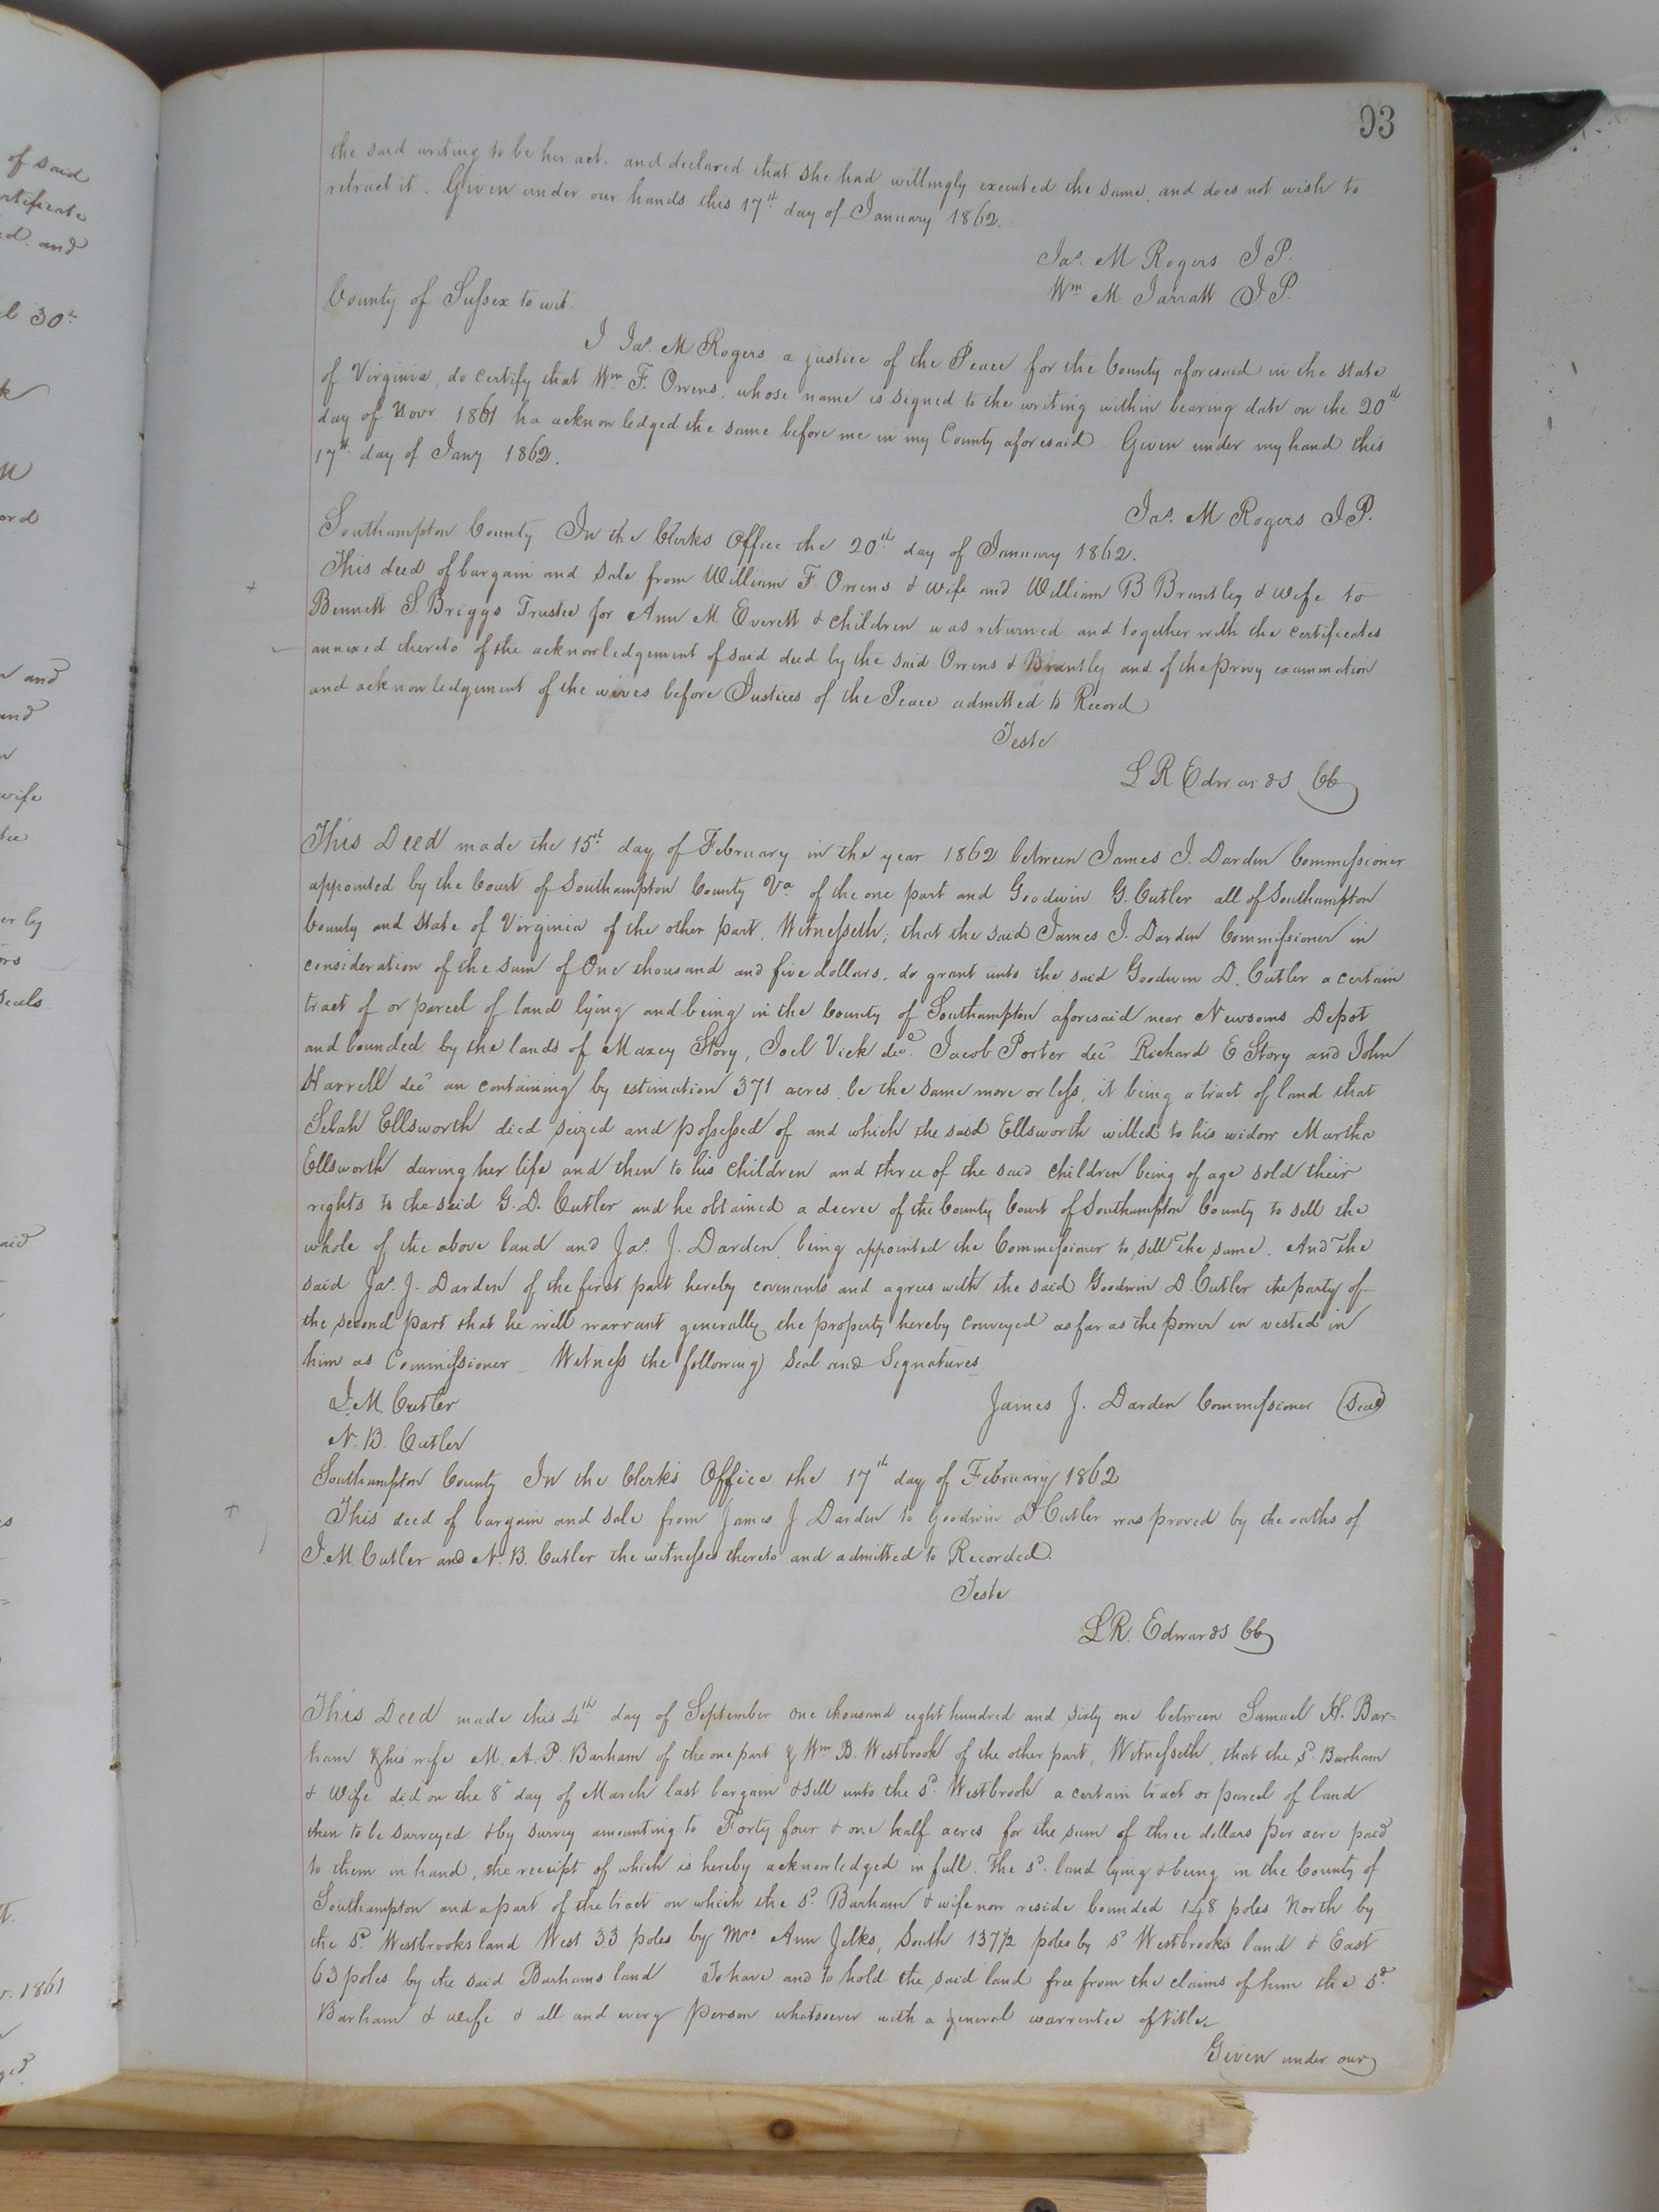 93
the said writing to be her act. and declared that she had willingly executed the same, and does not wish to
retract it. Given under our hands this 17th day of January 1862.
Jas. M Rogers J P.
Wm M Jarratt J.P.
County of Sussex to wit.
I Jas. M Rogers a justice of the Peace for the County aforesaid in the state
of Virginia, do certify that Wm F. Orrens, whose name is signed to the writing within bearing date on the 20th
day of Novr 1861 ha acknowledged the same before me in my County aforesaid Given under my hand this
17th day of Jany 1862.
Jas. M Rogers J.P.
Southampton County In the Clerks Office the 20th day of January 1862.
This deed of bargain and sale from William F Orrens & wife and William B Brantley & wife to
Bennett S. Briggs Trustee for Ann M Everett & children was returned and together with the certificates
annexed thereto of the acknowledgement of said deed by the said Orrens & Brantley and of the privy examination
and acknowledgement of the wives before Justices of the Peace admitted to Record
Teste
L R Edwards CC
This Deed made the 15th day of February in the year 1862 between James J. Darden Commissioner
appointed by the Court of Southampton County Va of the one part and Goodwin G. Cutler all of Southampton
County and State of Virginia of the other part. Witnesseth; that the said James J. Darden Commissioner in
consideration of the sum of One thousand and five dollars, do grant unto the said Goodwin D. Cutler a certain
tract of or parcel of land lying and being in the County of Southampton aforesaid near Newsoms Depot
and bounded by the lands of Maxey Story, Joel Vick decd. Jacob Porter decd Richard E Story and John
Harrell decd an containing by estimation 371 acres be the same more or less, it being a tract of land that
Selah Ellsworth died seized and possessed of and which the said Ellsworth willed to his widow Martha
Ellsworth during her life and then to his children and three of the said children being of age sold their
rights to the said G. D. Cutler and he obtained a decree of the County Court of Southampton County to sell the
whole of the above land and Jas. J. Darden being appointed the Commissioner to sell the same. And the
said Jas. J. Darden of the first part hereby covenants and agrees with the said Goodwin D. Cutler the party of
the second part that he will warrant generally the property hereby conveyed as far as the power in vested in
him as Commissioner Witness the following Seal and Signatures
J. M. Cutler
James J. Darden Commissioner (Seal)
N. B. Cutler
Southampton County In the Clerk's Office the 17th day of February 1862
This deed of bargain and sale from James J Darden to Goodwin D Cutler was proved by the oaths of
J. M. Cutler and N. B. Cutler the witnesses thereto and admitted to Recorded.
Teste
L R. Edwards CC
This Deed made this 4th day of September one thousand eight hundred and sixty one between Samuel H. Bar-
ham & his wife M. A. P. Barham of the one part & Wm B. Westbrook of the other part, Witnesseth, that the sd. Barham
& Wife did on the 8th day of March last bargain & sell unto the sd. Westbrook a certain tract or parcel of land
then to be surveyed & by survey amounting to Forty four & one half acres for the sum of three dollars per acre paid
to them in hand, the receipt of which is hereby acknowledged in full. The sd. land lying & being in the County of
Southampton and a part of the tract on which the sd. Barham & wife now reside bounded 148 poles North by
the sd. Westbrooks land West 33 poles by Mrs Ann Jelks, South 137½ poles by sd Westbrooks land & East
63 poles by the said Barhams land To have and to hold the said land free from the claims of him the sd.
Barham & wife & all and every person whatsoever with a general warrentee of title.
Given under our